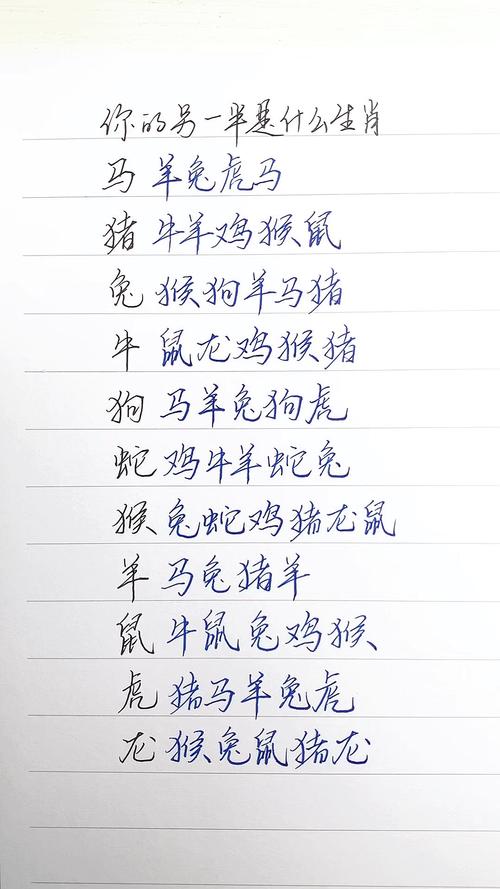 你的另一半是什么生肖
马 羊兔虎马
猪 牛羊鸡猴鼠
兔 猴狗羊马猪
牛 鼠龙鸡猴猪
狗 马羊兔狗虎
蛇 鸡牛羊蛇兔
猴 兔蛇鸡猪龙鼠
羊 马兔猪羊
鼠 牛鼠兔鸡猴
虎 猪马羊兔虎
龙 猴兔鼠猪龙